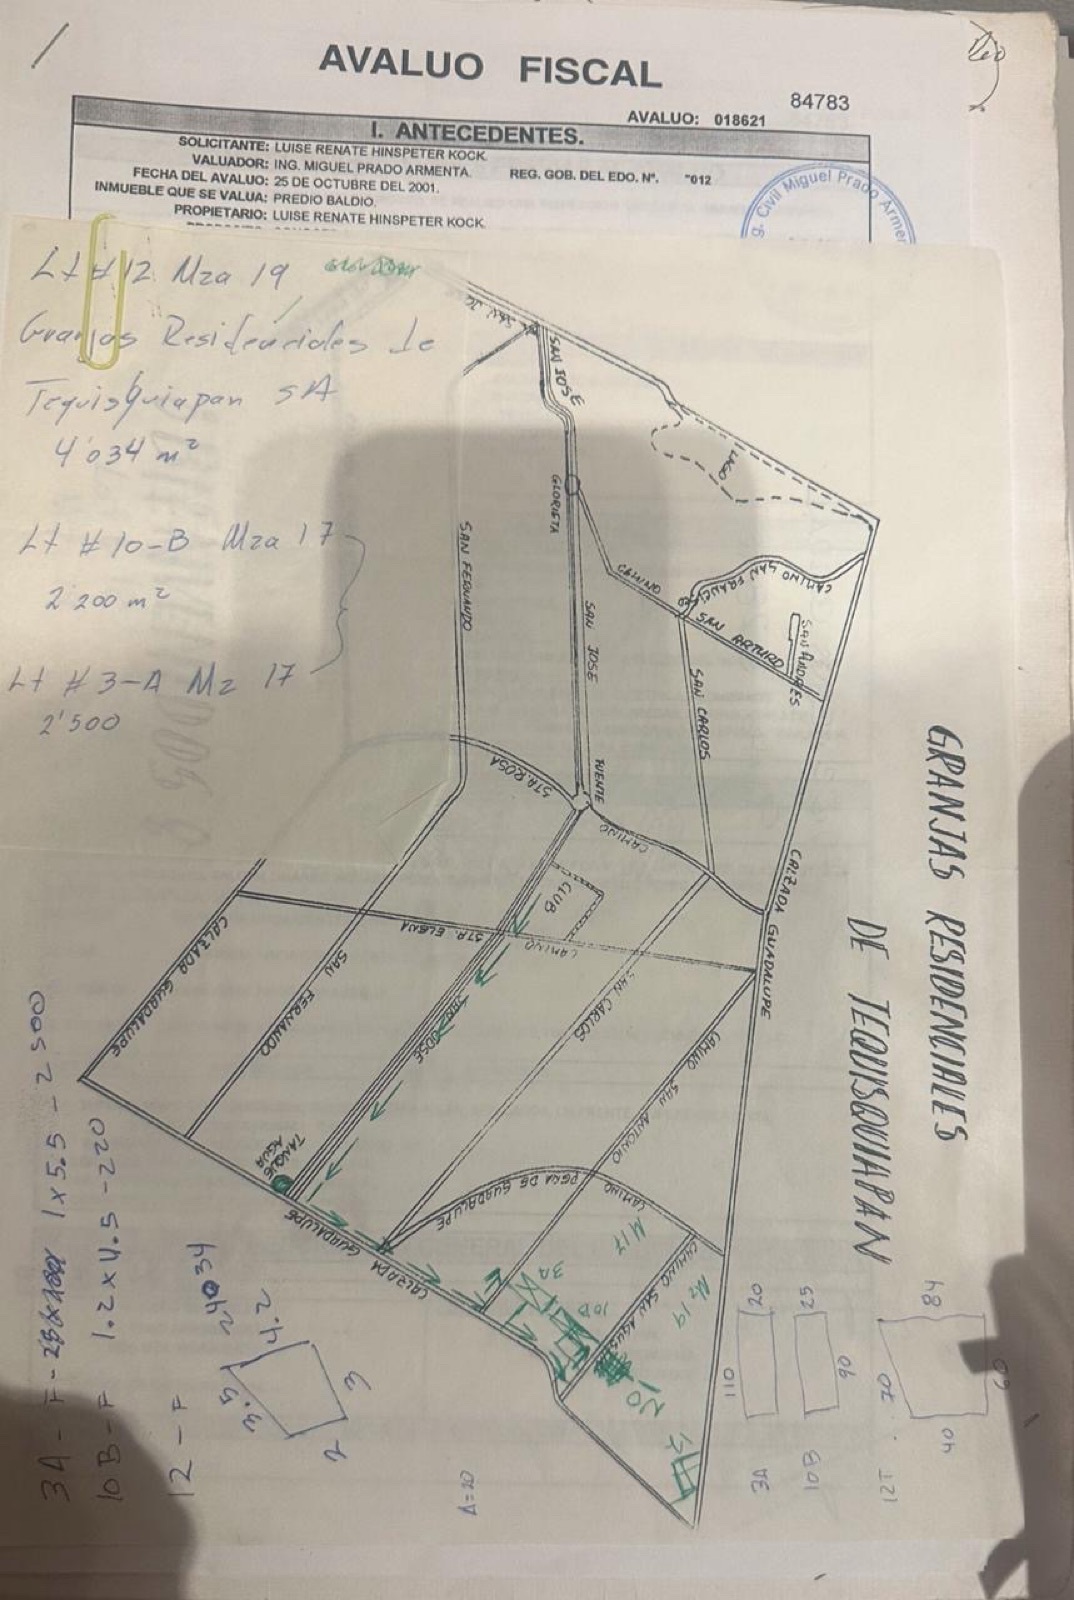 AVALUO FISCAL
84783
AVALUO: 018621
I. ANTECEDENTES.
SOLICITANTE: LUISE RENATE HINSPETER KOCK.
VALUADOR: ING. MIGUEL PRADO ARMENTA.
REG. GOB. DEL EDO. Nº. "012
FECHA DEL AVALUO: 25 DE OCTUBRE DEL 2001.
INMUEBLE QUE SE VALUA: PREDIO BALDIO.
PROPIETARIO: LUISE RENATE HINSPETER KOCK.
g. Civil Miguel Prado Armen
Lt #12 Mza 19
Granjas Residenciales de
Tequisquiapan SA
4'034 m²
Lt #10-B Mza 17
2'200 m²
Lt #3-A Mz 17
2'500
SAN JOSE
LAGO
GLORIETA
SAN FERNANDO
CAMINO
CAMINO SAN FRANCISCO
SAN ARTURO
SAN ANDRES
SAN JOSE
SAN CARLOS
STA. ROSA
PUENTE
CAMINO
CALZADA GUADALUPE
GRANJAS RESIDENCIALES
DE TEQUISQUIAPAN
CLUB
CAMINO STA. ELENA
CALZADA GUADALUPE
SAN FERNANDO
SAN JOSE
SAN CARLOS
CAMINO SAN ANTONIO
TANQUE
AGUA
CAMINO PEÑA DE GUADALUPE
CALZADA GUADALUPE
CAMINO SAN AGUSTIN
M 17
Mz 19
3A
10B
NO
12
3A - F - 1 x 5.5 - 2500
10B - F 1.2 x 4.5 - 220
12 - F
4.2
3.5
3
2
A=20
20
110
3A
25
90
10B
84
70
60
40
12T